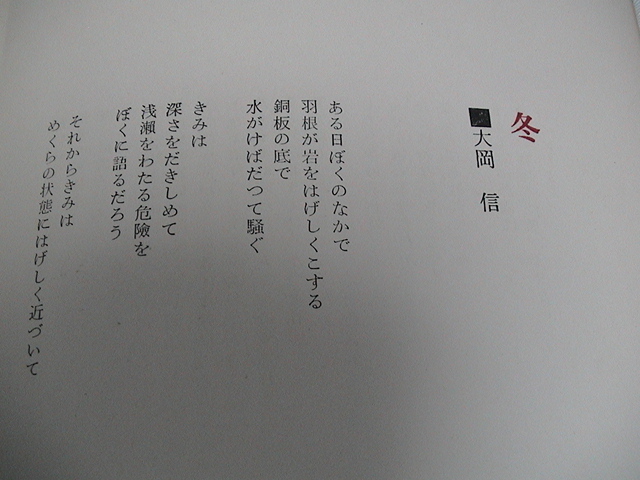 冬
大岡 信
ある日ぼくのなかで
羽根が岩をはげしくこする
銅板の底で
水がけばだつて騒ぐ
きみは
深さをだきしめて
浅瀬をわたる危険を
ぼくに語るだろう
それからきみは
めくらの状態にはげしく近づいて